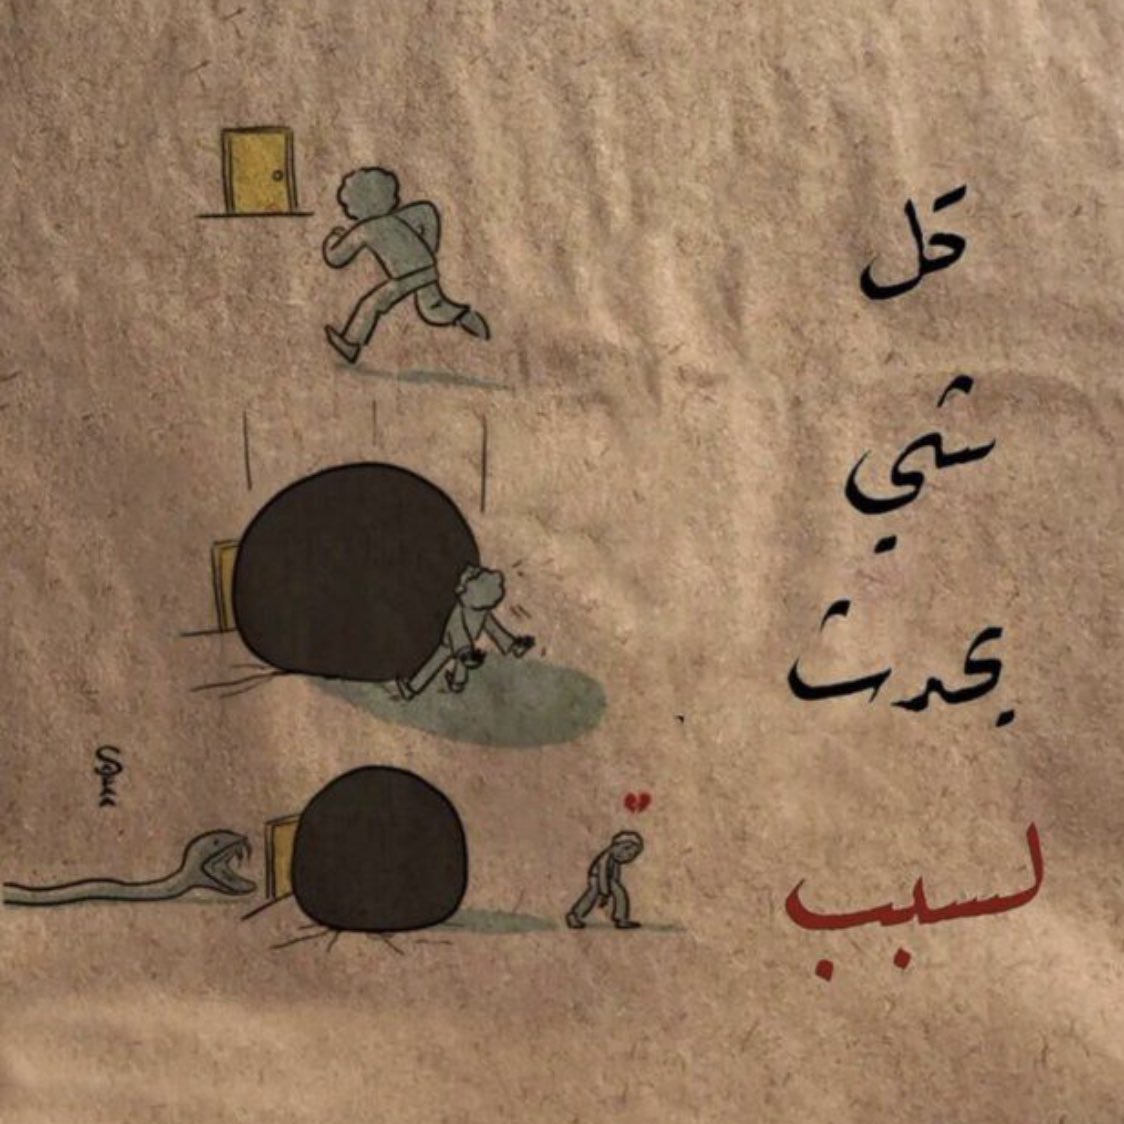 كل
شي
يحدث
لسبب